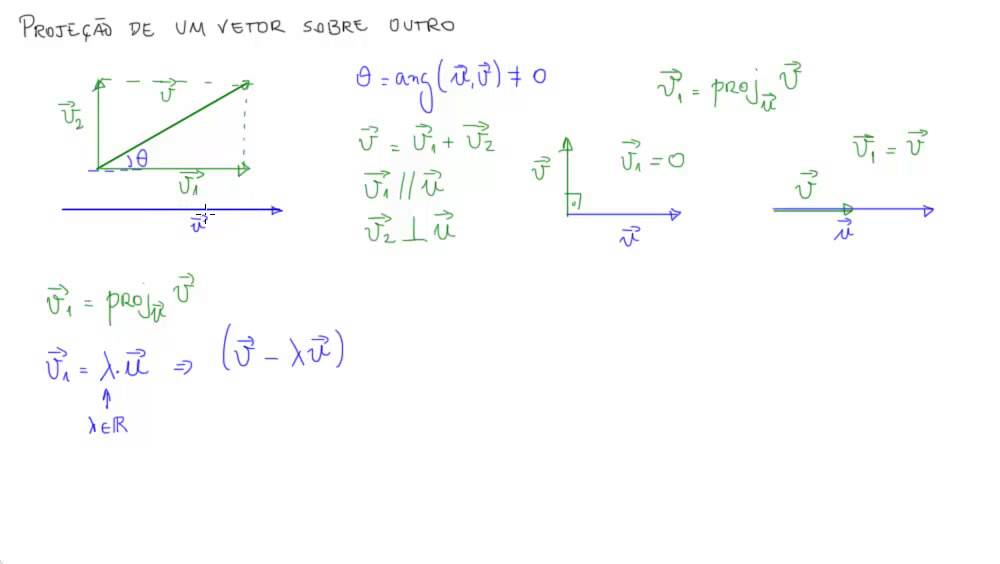 PROJEÇÃO DE UM VETOR SOBRE OUTRO
v⃗
v⃗₂
θ
v⃗₁
u⃗
θ = ang(u⃗, v⃗) ≠ 0
v⃗ = v⃗₁ + v⃗₂
v⃗₁ // u⃗
v⃗₂ ⊥ u⃗
v⃗₁ = proj_u⃗ v⃗
v⃗
v⃗₁ = 0
u⃗
v⃗₁ = v⃗
v⃗
u⃗
v⃗₁ = proj_u⃗ v⃗
v⃗₁ = λ.u⃗ ⇒ (v⃗ − λu⃗)
λ∈ℝ